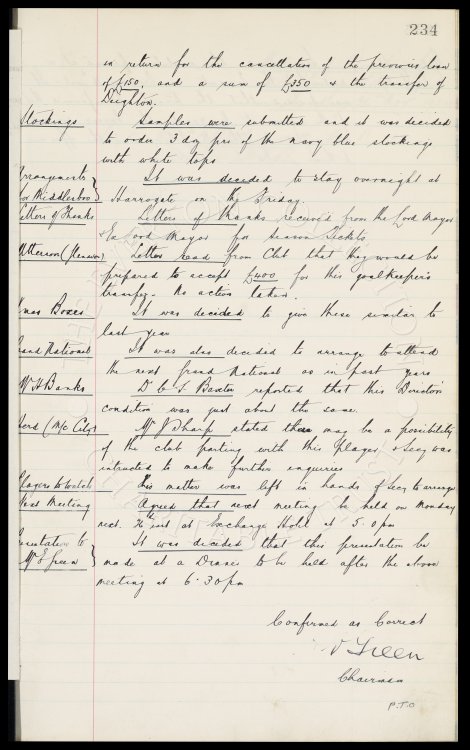 234
in return for the cancellation of the previous loan
of £150, and a sum of £350 & the transfer of
Deighton.
Stockings Samples were submitted and it was decided
to order 3 doz prs of the navy blue stockings
with white tops
Arrangements for Middlesboro It was decided to stay overnight at
Harrogate on the Friday.
Letters of Thanks Letters of thanks received from the Lord Mayor
& Ex Lord Mayor for Season Tickets.
Letter read from Club that they would be
prepared to accept £400 for this goalkeepers
transfer. No action taken.
Xmas Boxes It was decided to give these similar to
last year
Grand National It was also decided to arrange to attend
the next Grand National as in past years
W H Banks D C S Baxter reported that this Directors
condition was just about the same.
Herd (M/c City) Mr J Sharp stated there may be a possibility
of the club parting with this player & Secy was
intructed to make further inquiries
Players to watch This matter was left in hands of Secy to arrange
Next Meeting Agreed that next meeting be held on Monday
next. inst at Exchange Hotel at 5.0pm
Presentation to Mr E Green It was decided that this presentation be
made at a Dinner to be held after the above
meeting at 6.30pm
Confirmed as Correct
Green
Chairman
P.T.O